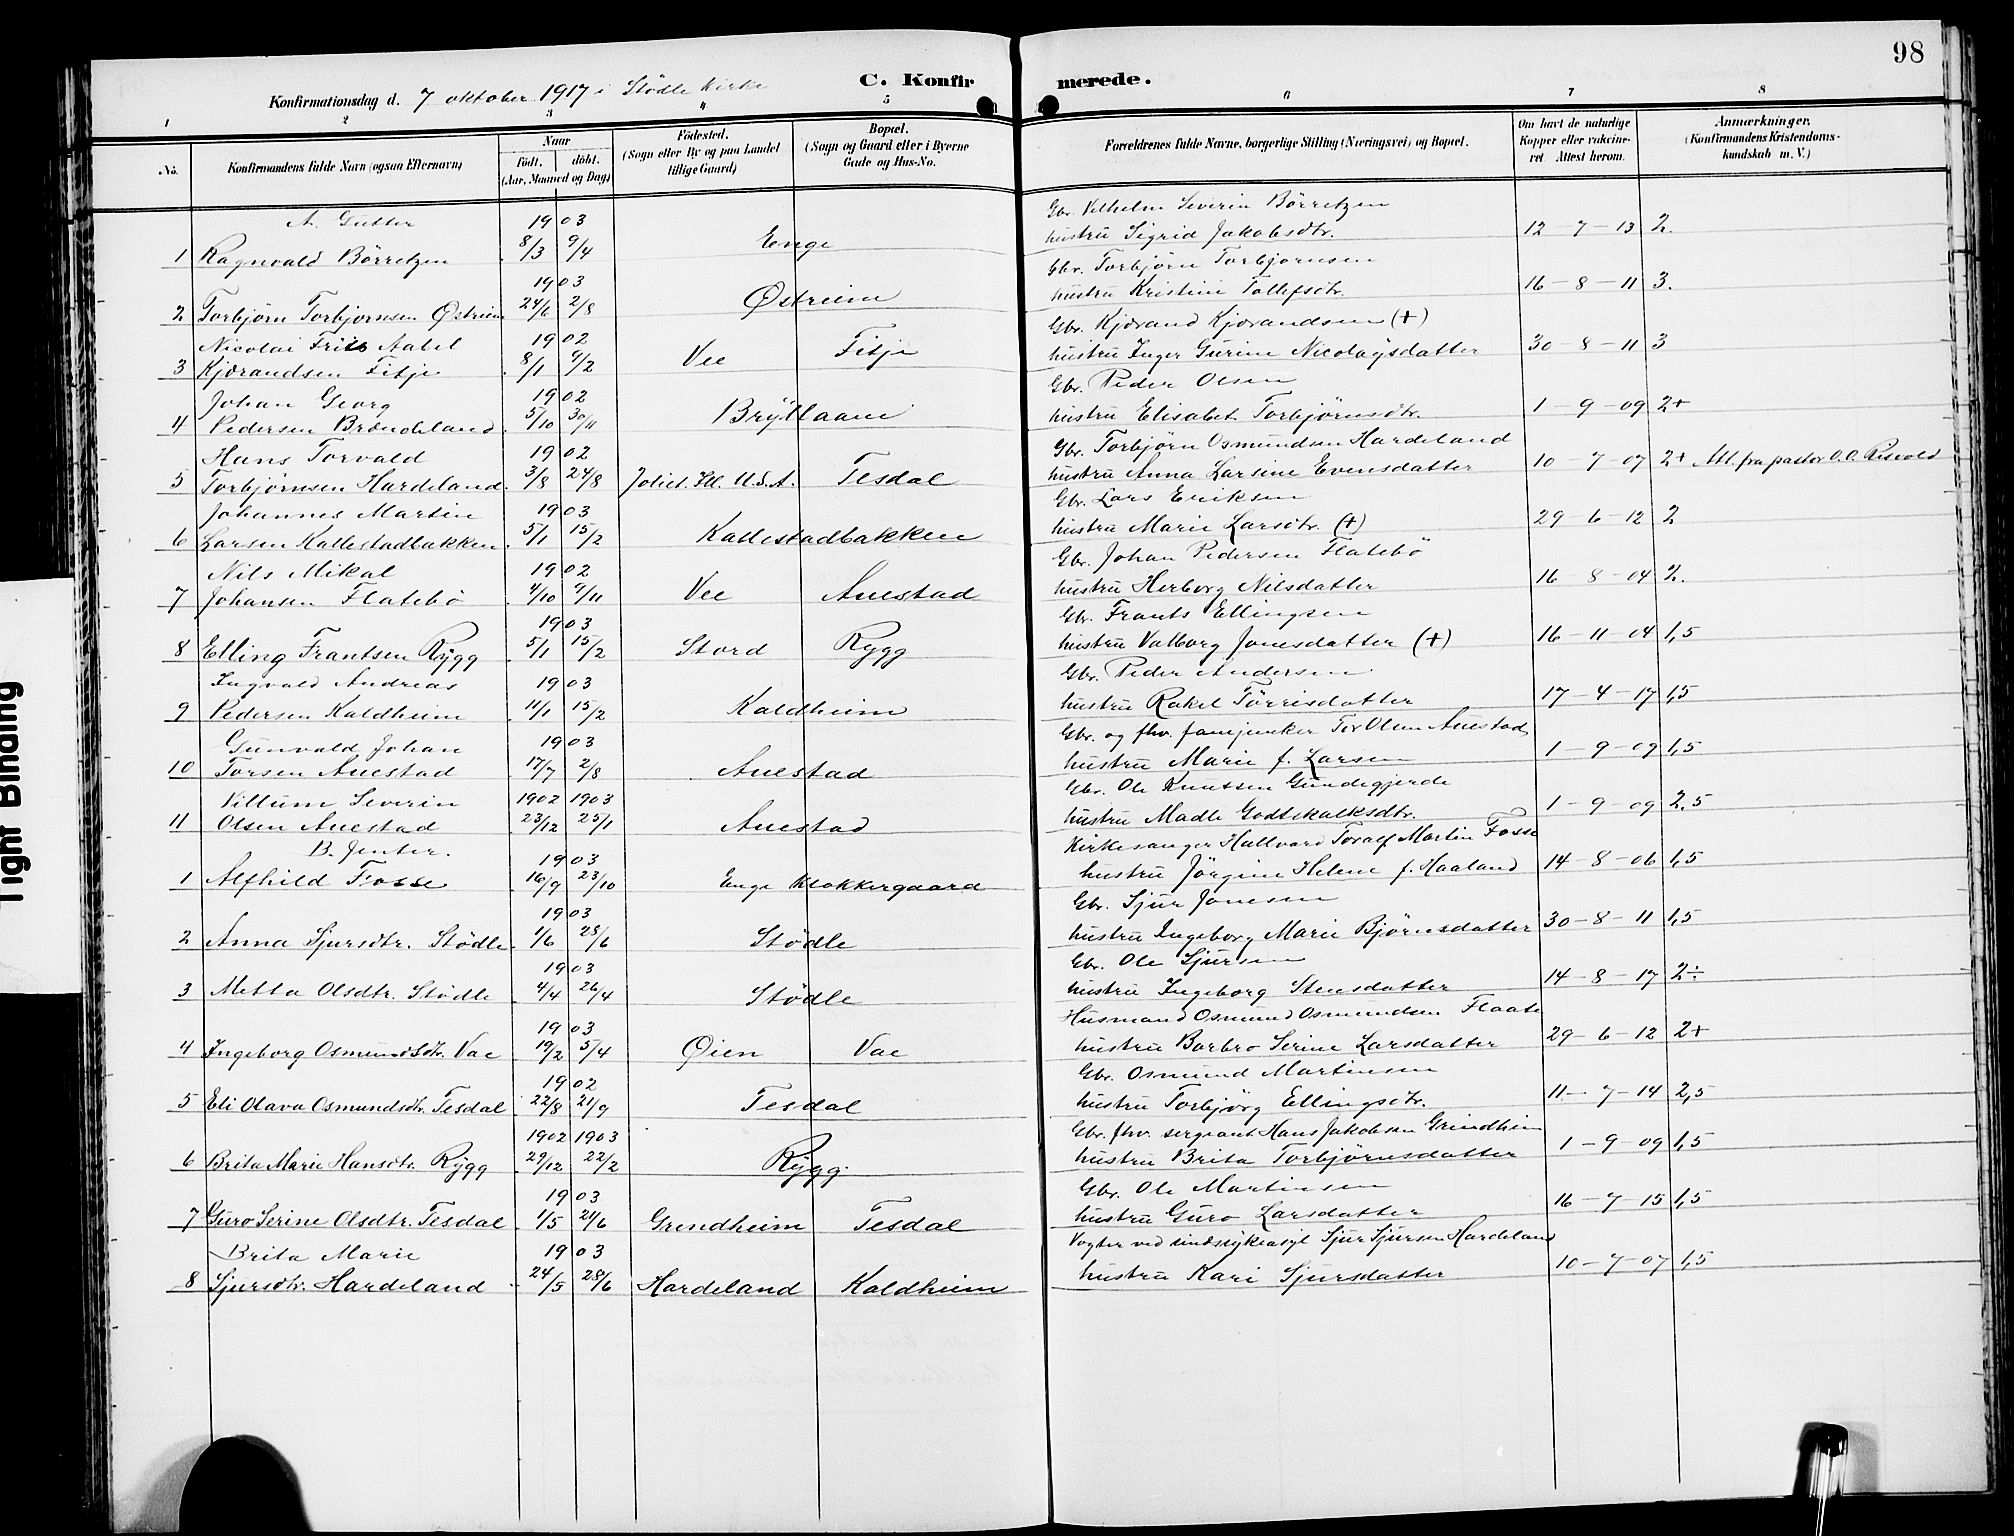 98
C. Konfirmerede.
Konfirmationsdag d. 7 oktober 1917 i Stödle kirke
1 2 3 4 5 6 7 8
No. Konfirmandens fulde Navn (ogsaa Efternavn)
Naar født. döbt. (Aar, Maaned og Dag)
Födested. (Sogn eller By og paa Landet tillige Gaard)
Bopæl. (Sogn og Gaard eller i Byerne Gade og Hus-No.
Forældrenes fulde Navne, borgerlige Stilling (Næringsvei) og Bopæl.
Om havt de naturlige Kopper eller vakcineret Attest herom.
Anmærkninger. (Konfirmandens Kristendomskundskab m. V.)
A. Gutter
1903 Gbr. Vilhelm Severin Börretzen
1 Ragnvald Börretzen 8/3 9/4 Enge hustru Sigrid Jakobsdtr. 12-7-13 2.
1903 Gbr. Torbjörn Torbjörnsen
2 Torbjörn Torbjörnsen Østreim 24/6 2/8 Østreim hustru Kristine Tollefsdtr. 16-8-11 3.
Nicolai Friis Aabel 1902 Gbr. Kjærand Kjærandsen (+)
3 Kjærandsen Fitje 8/1 9/2 Vee Fitje hustru Inger Gurine Nicolaysdatter 30-8-11 3
Johan Georg 1902 Gbr. Peder Olsen
4 Pedersen Brændeland 5/10 30/11 Bryllaani hustru Elisabet Torbjörnsdtr. 1-9-09 2+
Hans Torvald 1902 Gbr. Torbjörn Osmundsen Hardeland
5 Torbjörnsen Hardeland 3/8 24/8 Joliet. Ill. U.S.A. Tesdal hustru Anna Larsine Evensdatter 10-7-07 2+ Att. fra pastor O.O. Risvold
Johannes Martin 1903 Gbr. Lars Eriksen
6 Larsen Kallestadbakken 5/1 15/2 Kallestadbakken hustru Marie Larsdtr. (+) 29-6-12 2
Nils Mikal 1902 Gbr. Johan Pedersen Flatebö
7 Johansen Flatebö 4/10 9/11 Vee Auestad hustru Herborg Nilsdatter 16-8-04 2.
1903 Gbr. Frants Ellingsen
8 Elling Frantsen Rygg 5/1 15/2 Stord Rygg hustru Valborg Jonesdatter (+) 16-11-04 1,5
Ingvald Andreas 1903 Gbr. Peder Andersen
9 Pedersen Kaldheim 11/1 15/2 Kaldheim hustru Rakel Törrisdatter 17-4-17 1,5
Gunvald Johan 1903 Gbr. og fhv. fanejunker Tor Olsen Auestad
10 Torsen Auestad 17/7 2/8 Auestad hustru Marie f. Larsen 1-9-09 1,5
Villum Severin 1902 1903 Gbr. Ole Knutsen Gundegjerde
11 Olsen Auestad 23/12 25/1 Auestad hustru Madle Godtskalksdtr. 1-9-09 2,5
B. Jenter.
1903 Kirkesanger Hallvard Toralf Martin Fosse
1 Alfhild Fosse 16/9 23/10 Enge Klokkergaard hustru Jörgine Helene f. Haaland 14-8-06 1,5
1903 Gbr. Sjur Jonesen
2 Anna Sjursdtr. Stödle 1/6 28/6 Stödle hustru Ingeborg Marie Björnsdatter 30-8-11 1,5
1903 Gbr. Ole Sjursen
3 Metta Olsdtr. Stödle 4/4 26/4 Stödle hustru Ingeborg Stensdatter 14-8-17 2÷
1903 Husmand Osmund Osmundsen Flaate
4 Ingeborg Osmundsdtr. Vae 19/2 5/4 Øien Vae hustru Barbro Serine Larsdatter 29-6-12 2+
1902 Gbr. Osmund Martinsen
5 Eli Olava Osmundsdtr. Tesdal 22/8 21/9 Tesdal hustru Torbjörg Ellingsdtr. 11-7-14 2,5
1902 1903 Gbr. fhv. sergeant Hans Jakobsen Grindheim
6 Brita Marie Hansdtr. Rygg 29/12 22/2 Rygg. hustru Brita Torbjörnsdatter 1-9-09 1,5
1903 Gbr. Ole Martinsen
7 Guro Serine Olsdtr. Tesdal 1/5 21/6 Grendheim Tesdal hustru Guro Larsdatter 16-7-15 1,5
Brita Marie 1903 Vogter ved sindssykeasyl Sjur Sjursen Hardeland
8 Sjursdtr. Hardeland 24/5 28/6 Hardeland Kaldheim hustru Kari Sjursdatter 10-7-07 1,5
Tight Binding